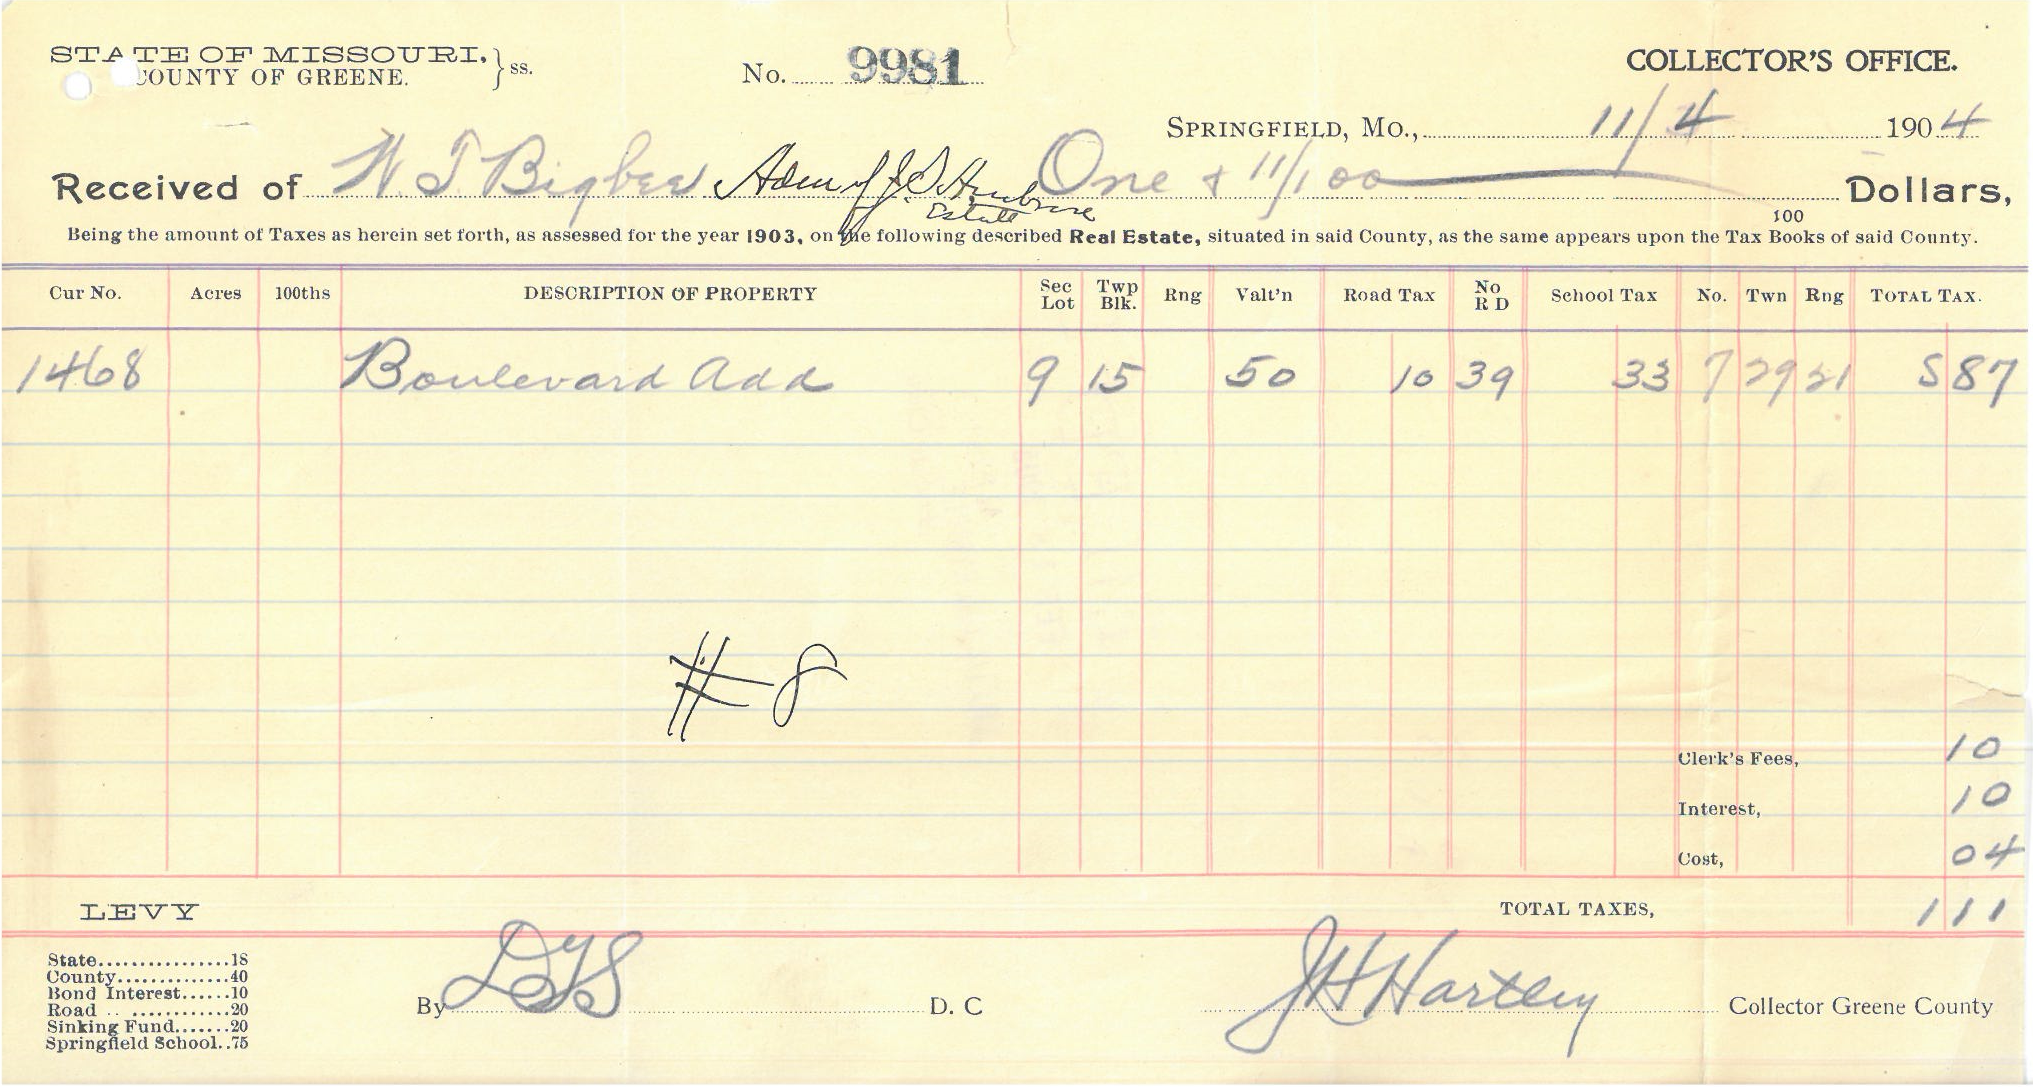 STATE OF MISSOURI, } ss.
COUNTY OF GREENE.
No. 9981
COLLECTOR'S OFFICE.
SPRINGFIELD, MO., 11/4 1904
Received of W. T. Bigbee Adm of J. S. Estate One + 11/100 Dollars,
100
Being the amount of Taxes as herein set forth, as assessed for the year 1903, on the following described Real Estate, situated in said County, as the same appears upon the Tax Books of said County.
Cur No. Acres 100ths DESCRIPTION OF PROPERTY Sec Lot Twp Blk. Rng Valt'n Road Tax No R D School Tax No. Twn Rng TOTAL TAX.
1468 Boulevard Add 9 15 50 10 39 33 7 29 21 S 87
#8
Clerk's Fees, 10
Interest, 10
Cost, 04
TOTAL TAXES, 1 11
LEVY
State................18
County.............40
Bond Interest......10
Road .. ............20
Sinking Fund.......20
Springfield School..75
By DGS D. C
J H Hartley Collector Greene County